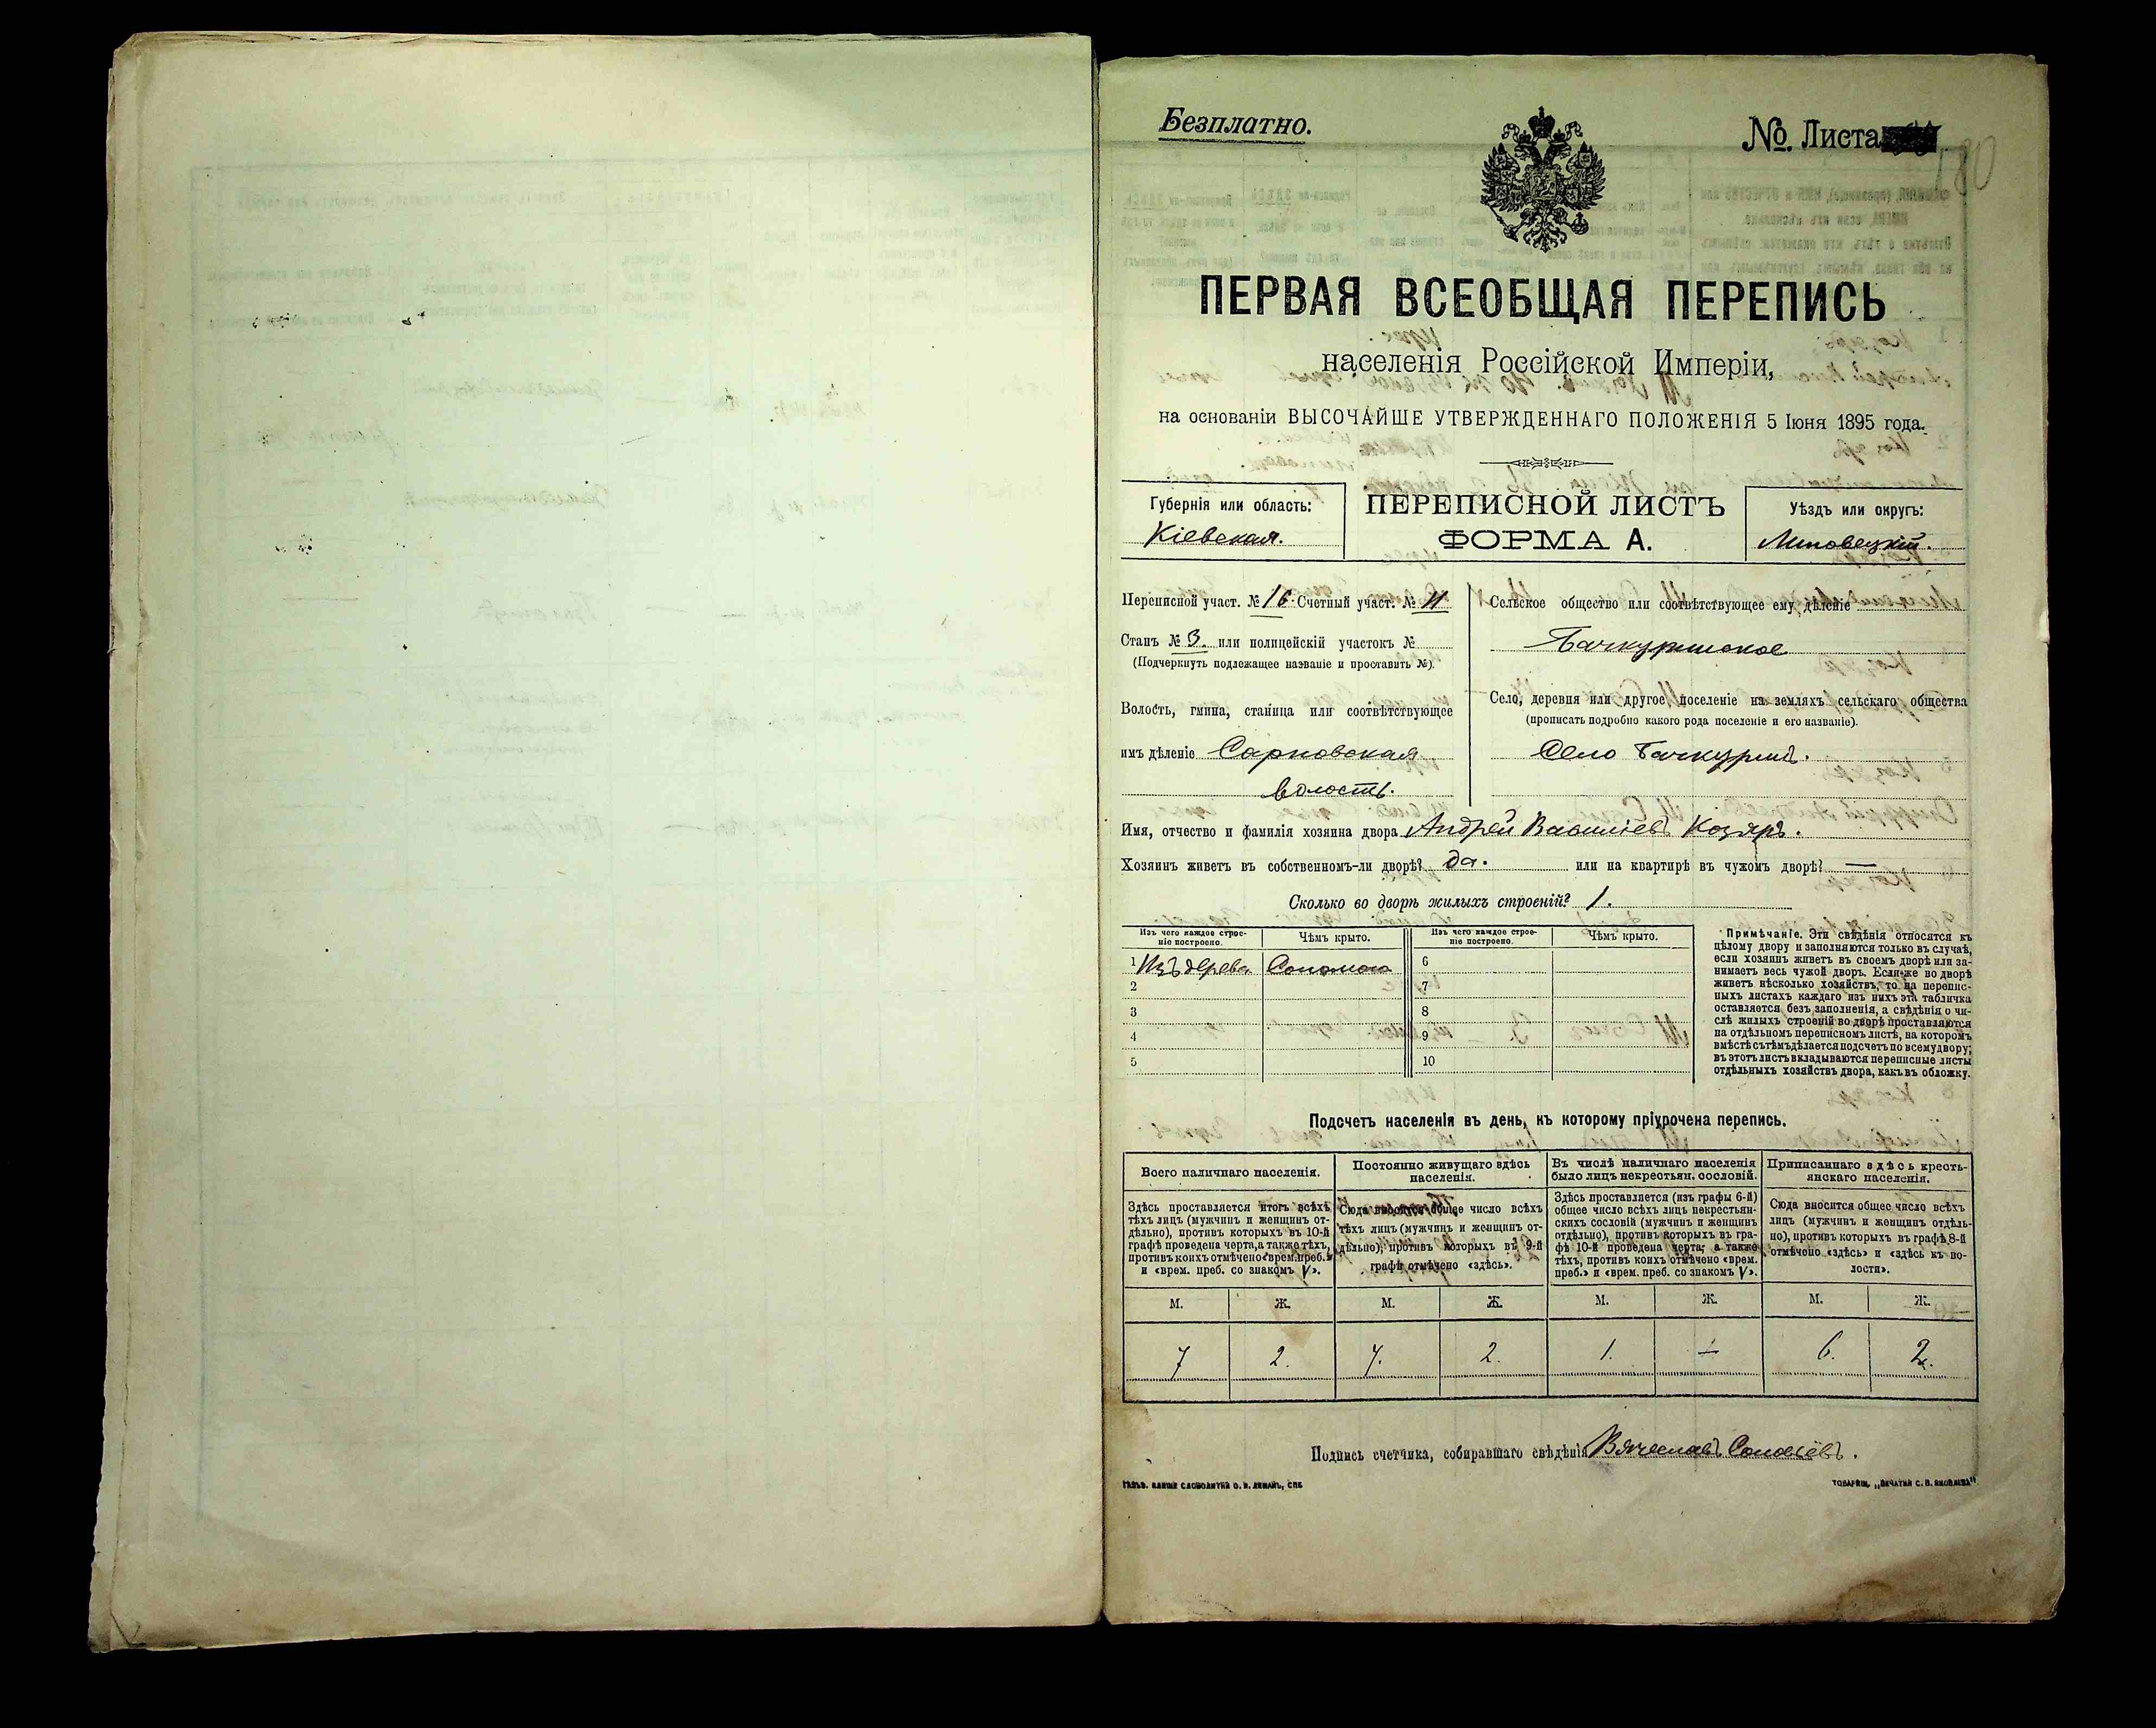 Безплатно.
№. Листа
180
ПЕРВАЯ ВСЕОБЩАЯ ПЕРЕПИСЬ
населенія Россійской Имперіи,
на основаніи ВЫСОЧАЙШЕ УТВЕРЖДЕННАГО ПОЛОЖЕНІЯ 5 Іюня 1895 года.
Губернія или область:
Кіевская.
ПЕРЕПИСНОЙ ЛИСТЪ
ФОРМА А.
Уѣздъ или округъ:
Липовецкій.
Переписной участ. № 16. Счетный участ. № 11
Станъ № 3. или полицейскій участокъ №
(Подчеркнуть подлежащее названіе и проставить №).
Волость, гмина, станица или соотвѣтствующее
имъ дѣленіе Сарновская
волость.
Сельское общество или соотвѣтствующее ему дѣленіе
Бачкуринское
Село, деревня или другое поселеніе на земляхъ сельскаго общества
(прописать подробно какого рода поселеніе и его названіе).
Село Бачкуринъ.
Имя, отчество и фамилія хозяина двора Андрей Василіевъ Козярь.
Хозяинъ живетъ въ собственномъ-ли дворѣ? да. или на квартирѣ въ чужомъ дворѣ? —
Сколько во дворѣ жилыхъ строеній? 1.
Изъ чего каждое строе-
ніе построено.
Чѣмъ крыто.
Изъ чего каждое строе-
ніе построено.
Чѣмъ крыто.
1 Изъ дерева Соломою 6
2 7
3 8
4 9
5 10
Примѣчаніе. Эти свѣдѣнія относятся къ
цѣлому двору и заполняются только въ случаѣ,
если хозяинъ живетъ въ своемъ дворѣ или за-
нимаетъ весь чужой дворъ. Если-же во дворѣ
живетъ нѣсколько хозяйствъ, то на перепис-
ныхъ листахъ каждаго изъ нихъ эта табличка
оставляется безъ заполненія, а свѣдѣнія о чи-
слѣ жилыхъ строеній во дворѣ проставляются
на отдѣльномъ переписномъ листѣ, на которомъ
вмѣстѣ съ тѣмъ дѣлается подсчетъ по всему двору;
въ этотъ листъ вкладываются переписные листы
отдѣльныхъ хозяйствъ двора, какъ въ обложку.
Подсчетъ населенія въ день, къ которому пріурочена перепись.
Всего наличнаго населенія.
Постоянно живущаго здѣсь
населенія.
Въ числѣ наличнаго населенія
было лицъ некрестьян. сословій.
Приписаннаго здѣсь кресть-
янскаго населенія.
Здѣсь проставляется итогъ всѣхъ
тѣхъ лицъ (мужчинъ и женщинъ от-
дѣльно), противъ которыхъ въ 10-й
графѣ проведена черта, а также тѣхъ,
противъ коихъ отмѣчено «врем. преб.»
и «врем. преб. со знакомъ V».
Сюда вносится общее число всѣхъ
тѣхъ лицъ (мужчинъ и женщинъ от-
дѣльно), противъ которыхъ въ 9-й
графѣ отмѣчено «здѣсь».
Здѣсь проставляется (изъ графы 6-й)
общее число всѣхъ лицъ некрестьян-
скихъ сословій (мужчинъ и женщинъ
отдѣльно), противъ которыхъ въ гра-
фѣ 10-й проведена черта, а также
тѣхъ, противъ коихъ отмѣчено «врем.
преб.» и «врем. преб. со знакомъ V».
Сюда вносится общее число всѣхъ
лицъ (мужчинъ и женщинъ отдѣль-
но), противъ которыхъ въ графѣ 8-й
отмѣчено «здѣсь» и «здѣсь въ во-
лости».
М. Ж. М. Ж. М. Ж. М. Ж.
7 2. 7. 2. 1. — 6. 2.
Подпись счетчика, собиравшаго свѣдѣнія Вячеславъ Соловьёвъ.
ТОВАРИЩ. „ПЕЧАТНЯ С. П. ЯКОВЛЕВА"